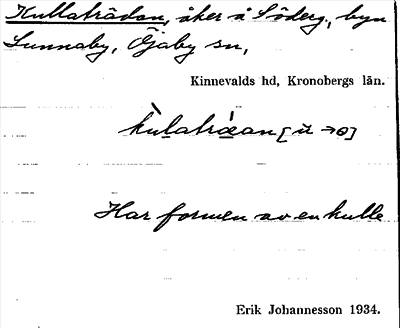 Kullaträdan, åker å Söderg., byn
Sunnaby, Öjaby sn,
Kinnevalds hd, Kronobergs län.
kùlatræ̀an [ù → ө]
Har formen av en kulle
Erik Johannesson 1934.